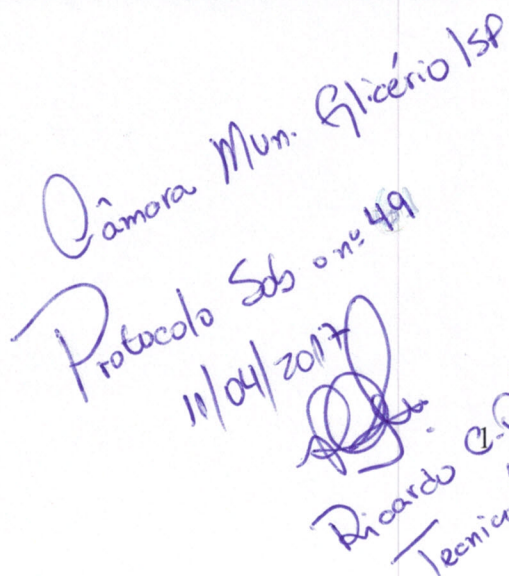 Câmara Mun. Glicério/SP
Protocolo Sob o nº 49
11/04/2017
Ricardo C.
1
Tecnic